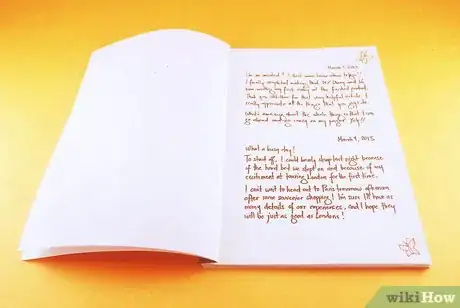 March
I finally completed making that
now writing my first entry at the finished product.
Thank you for that very helpful article. I
really appreciate all the things that you guys do.
What's amazing about the whole thing is that I can
go ahead and an entry on my Yay!!
March 9, 2015
What a busy day!
To start off, I could barely sleep last night because
of the hard bed we slept on and because of my
excitement at touring London for the first time.
I can't wait to head out to Paris tomorrow afternoon
after some souvenir shopping! I'm sure I'll have as
many details of our experiences, and I hope they
will be just as good as Londons!
wikiHow